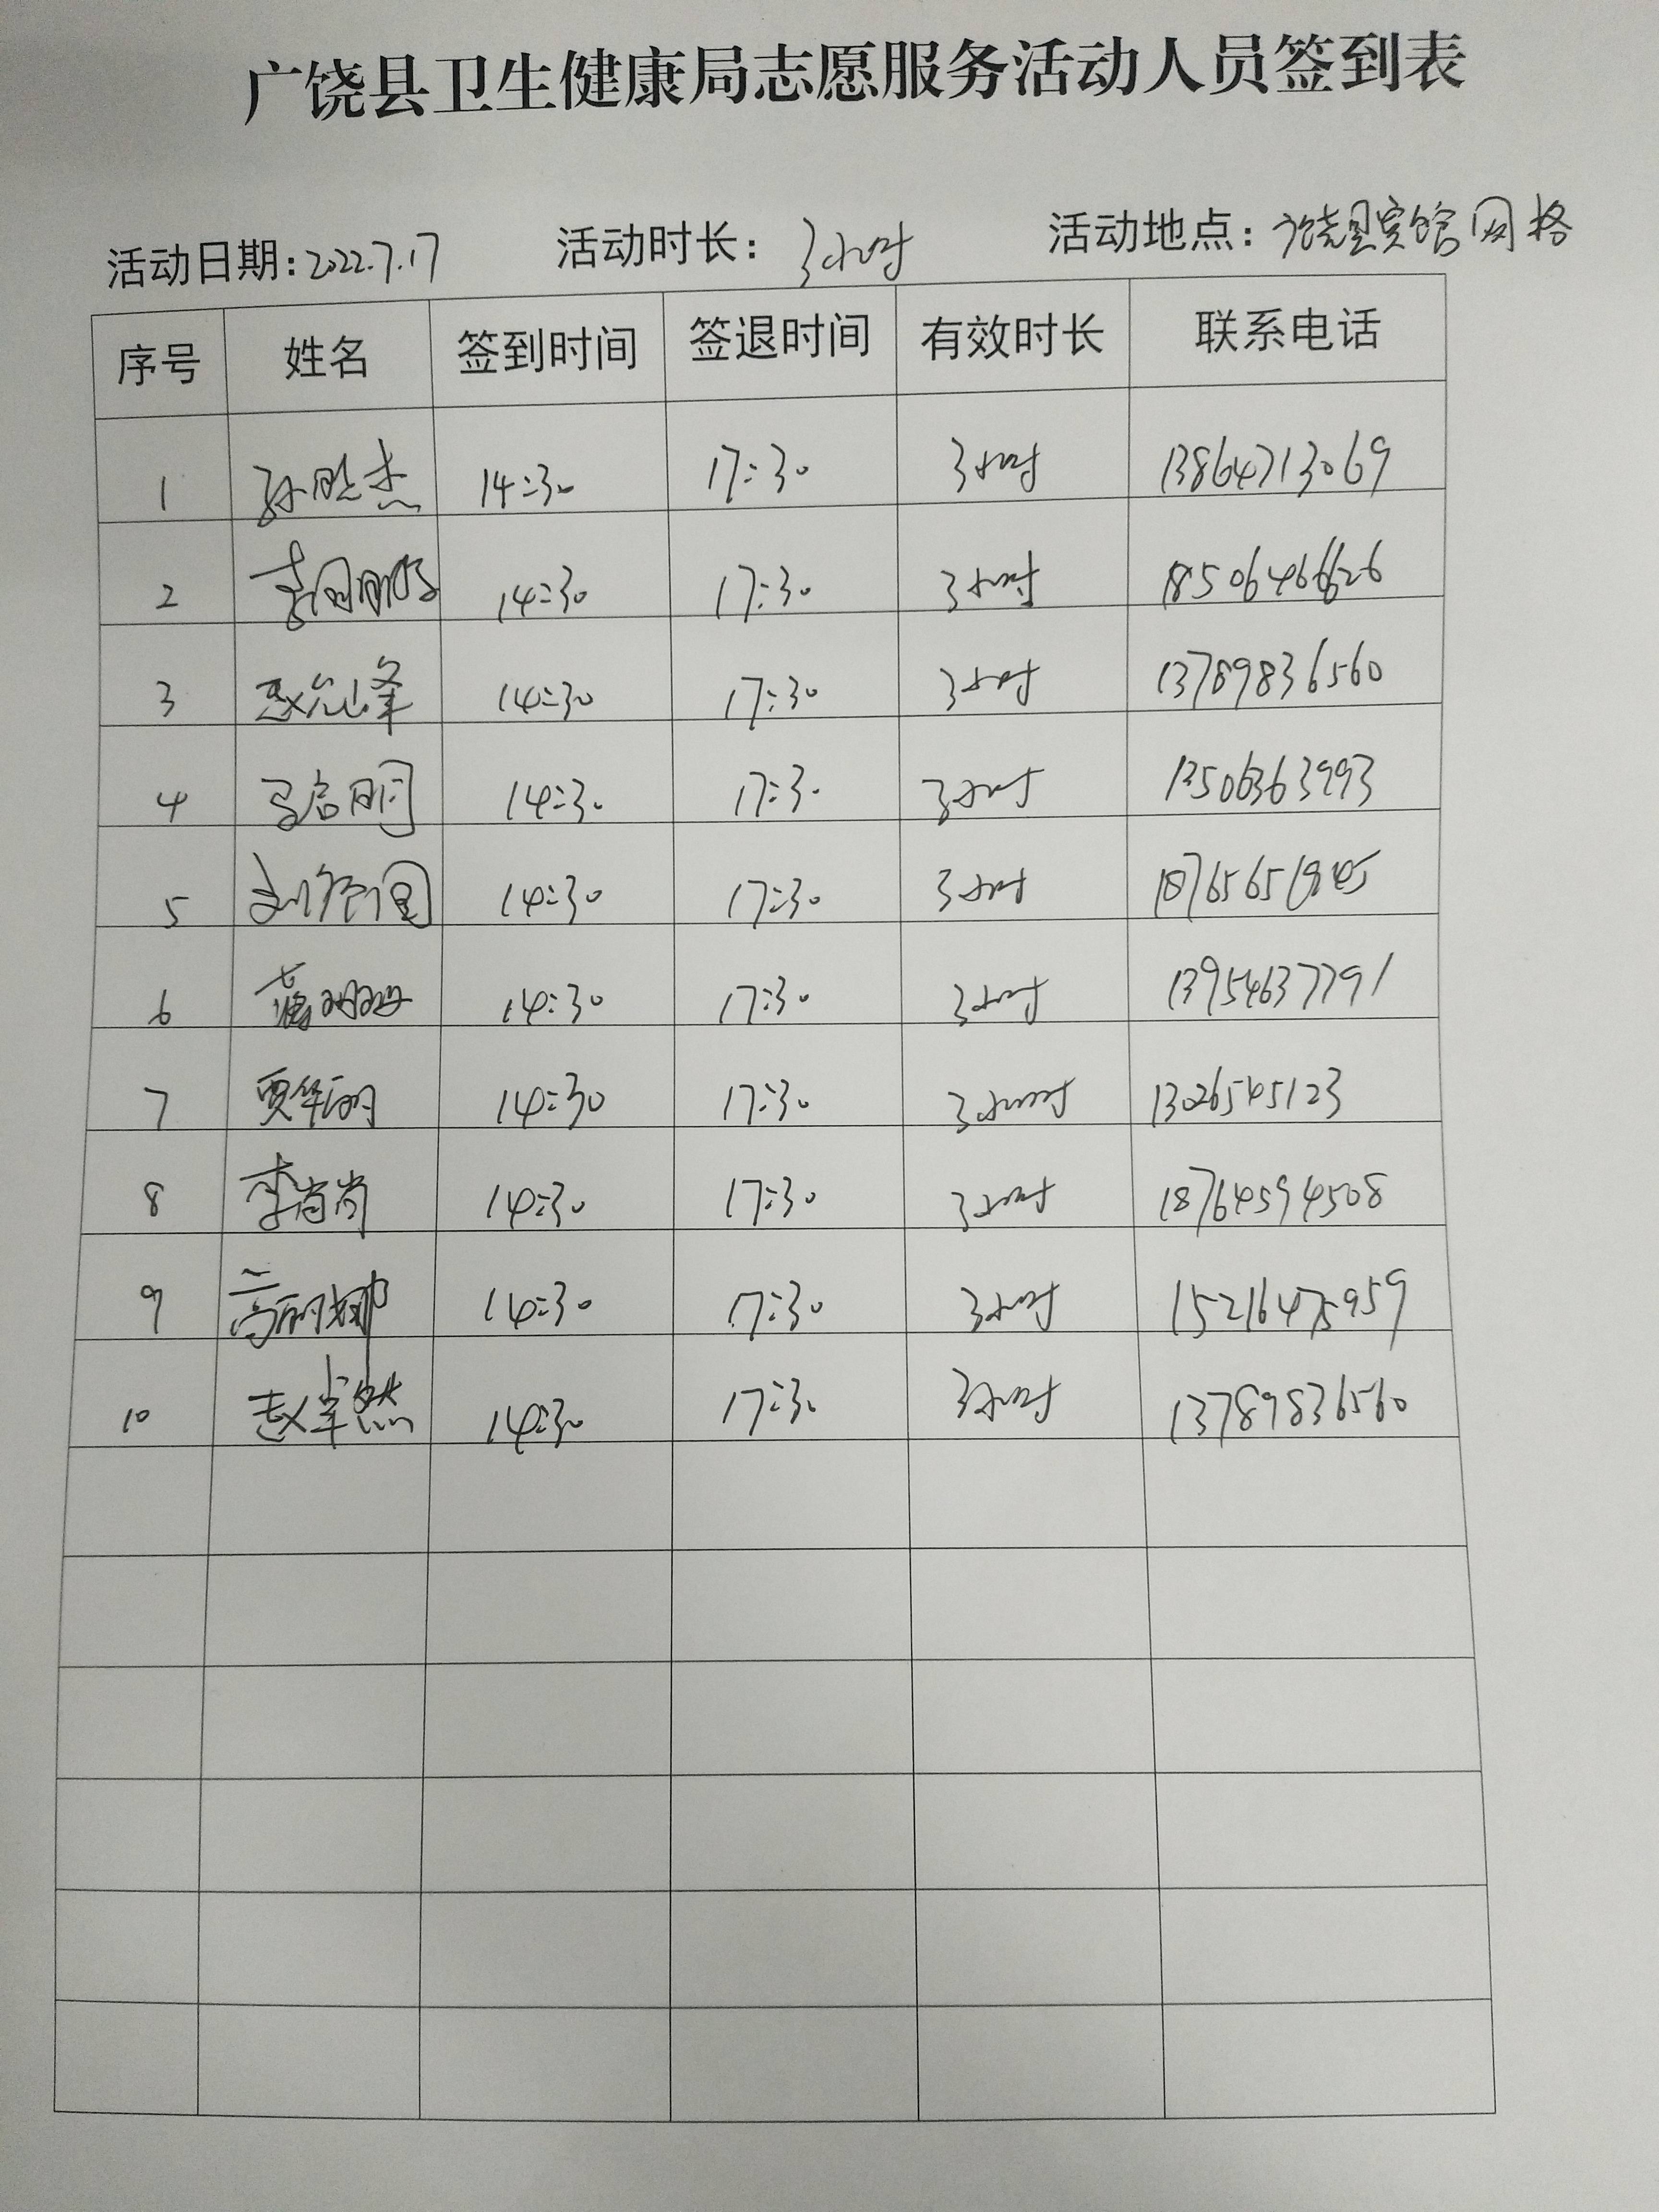 广饶县卫生健康局志愿服务活动人员签到表
活动日期:2022.7.17 活动时长:3小时 活动地点:广饶县宾馆网格
序号 姓名 签到时间 签退时间 有效时长 联系电话
1 孙胜杰 14:30 17:30 3小时 13864713069
2 14:30 17:30 3小时 18506466626
3 赵允峰 14:30 17:30 3小时 13789836560
4 14:30 17:30 3小时 13506363993
5 14:30 17:30 3小时
6 14:30 17:30 3小时 13954637791
7 贾华丽 14:30 17:30 3小时 13026545123
8 李肖肖 14:30 17:30 3小时 18764594508
9 高丽娜 14:30 17:30 3小时 15216475959
10 赵卓然 14:30 17:30 3小时 13789836560